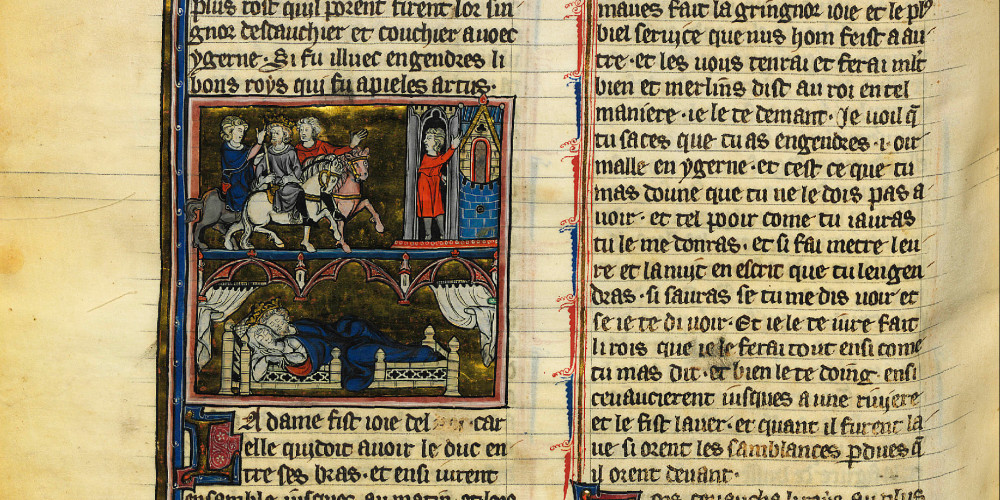 plus tost quil porent firent lor sin
gnor descauchier et couchier auoec
ygerne· Si fu illuec engendres li
bons roys qui fu apieles artus·
LA dame fist ioie del car
elle quidoit auoir le duc en
tre ses bras· et ensi iurent
ensamble iusques au matin· et lors
maues fait la gringnor ioie et le plꝰ
biel seruice que nus hom feist a au
tre· et les uous tenrai et ferai ml̃t
bien et merlins dist au roi en tel
maniere· ie le te demant· Je uoil q̃
tu saces que tu as engendres ·i· oir
malle en ygerne· et cest ce que tu
mas doune que tu ne le dois pas a
uoir· et tel pooir come tu i auras
tu le me donras· et si fai metre leu
re et la nuit en escrit que tu lengen
dras· si sauras se tu me dis uoir et
se ie te di uoir· Et ie le te iure fait
li rois que ie le ferai tout ensi come
tu mas dit· et bien le te doing· ensi
cheuaucierent iusques a une riuyere
et le fist lauer· et quant il furent la
ue si orent les samblances ꝑdues q̃
il orent deuant·